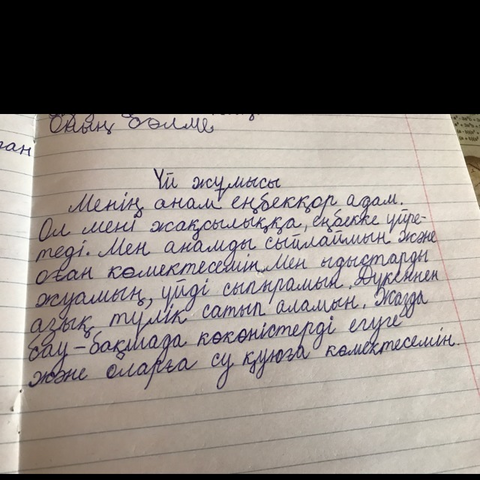 Оның бөлме
ған
Үй жұмысы
Менің анам еңбекқор адам.
Ол мені жақсылыққа, еңбекке үйре-
теді. Мен анамды сыйлаймын және
оған көмектесемін. Мен ыдыстарды
жуамың, үйді сыпырамын. Дүкеннен
азық, түлік сатып аламын. Жазда
бау-бақшада көкөністерді егуге
және оларға су құюға көмектесемін.